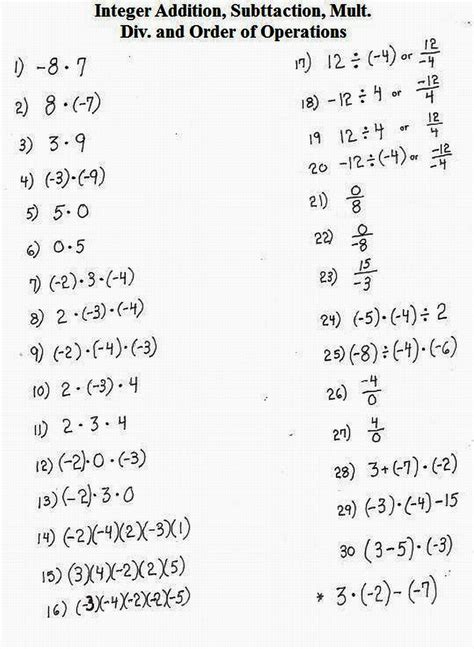 Integer Addition, Subttaction, Mult.
Div. and Order of Operations
1) -8 · 7
2) 8 · (-7)
3) 3 · 9
4) (-3) · (-9)
5) 5 · 0
6) 0 · 5
7) (-2) · 3 · (-4)
8) 2 · (-3) · (-4)
9) (-2) · (-4) · (-3)
10) 2 · (-3) · 4
11) 2 · 3 · 4
12) (-2) · 0 · (-3)
13) (-2) · 3 · 0
14) (-2)(-4)(2)(-3)(1)
15) (3)(4)(-2)(2)(5)
16) (-3)(-4)(-2)(-2)(-5)
17) 12 ÷ (-4) or 12/-4
18) -12 ÷ 4 or -12/4
19 12 ÷ 4 or 12/4
20 -12 ÷ (-4) or -12/-4
21) 0/8
22) 0/-8
23) 15/-3
24) (-5) · (-4) ÷ 2
25) (-8) ÷ (-4) · (-6)
26) -4/0
27) 4/0
28) 3 + (-7) · (-2)
29) (-3) · (-4) - 15
30 (3 - 5) · (-3)
* 3 · (-2) - (-7)